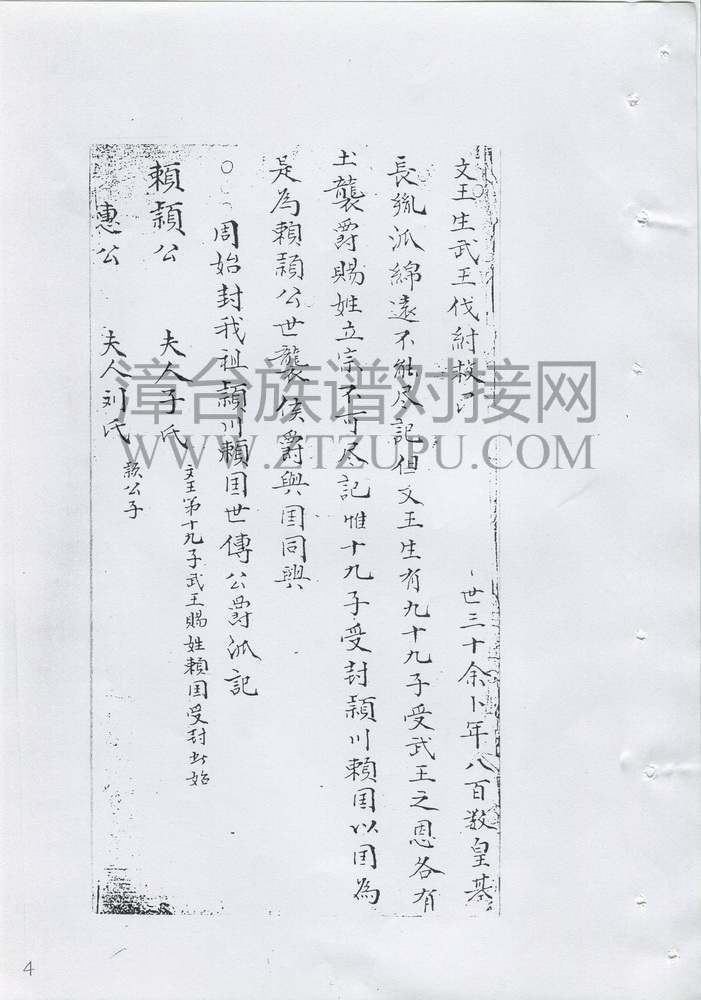 文王生武王伐紂救
世三十余卜年八百数皇基
長胤派綿遠不能尽記但文王生有九十九子受武王之恩各有
土襲爵賜姓立宗不可尽記惟十九子受封頴川賴国以国為
是為賴頴公世襲侯爵與国同興
周始封我祖頴川賴国世傳公爵派記
賴頴公 夫人子氏 文王第十九子武王賜姓賴国受封此始
惠公 夫人刘氏 頴公子
漳台族谱对接网
WWW.ZTZUPU.COM
4